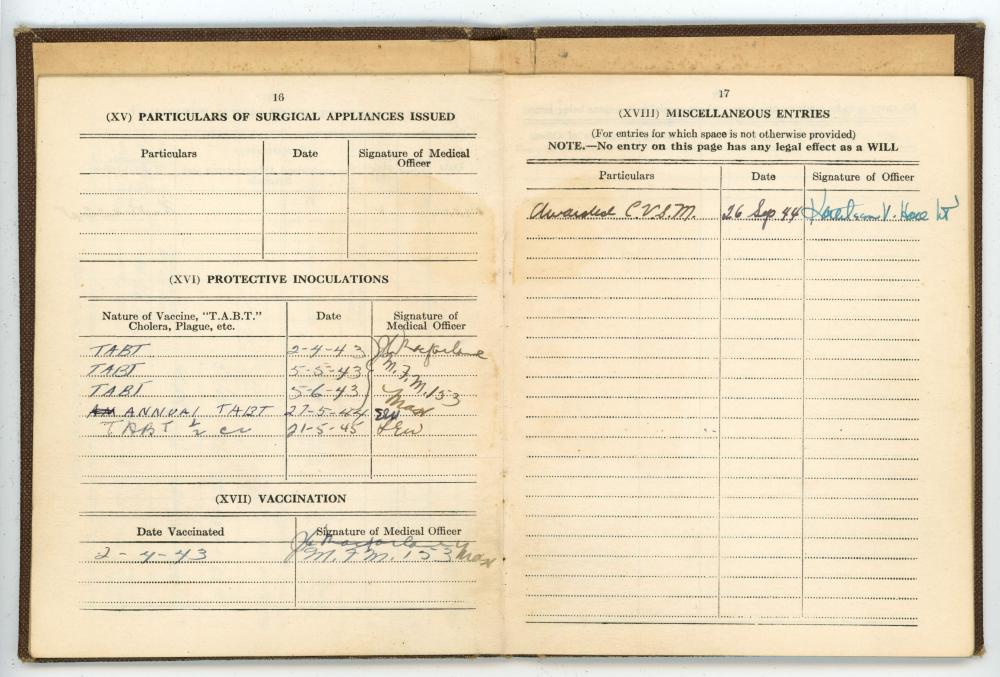 16
(XV) PARTICULARS OF SURGICAL APPLIANCES ISSUED
Particulars Date Signature of Medical Officer
(XVI) PROTECTIVE INOCULATIONS
Nature of Vaccine, "T.A.B.T." Cholera, Plague, etc. Date Signature of Medical Officer
TABT 2-4-43
TABT 5-5-43 M.F.M. 153
TABT 5-6-43
ANNUAL TABT 27-5-44
TABT ½ cc 21-5-45
(XVII) VACCINATION
Date Vaccinated Signature of Medical Officer
2-4-43 M.F.M. 153
17
(XVIII) MISCELLANEOUS ENTRIES
(For entries for which space is not otherwise provided)
NOTE.—No entry on this page has any legal effect as a WILL
Particulars Date Signature of Officer
Awarded C.V.S.M. 26 Sep 44